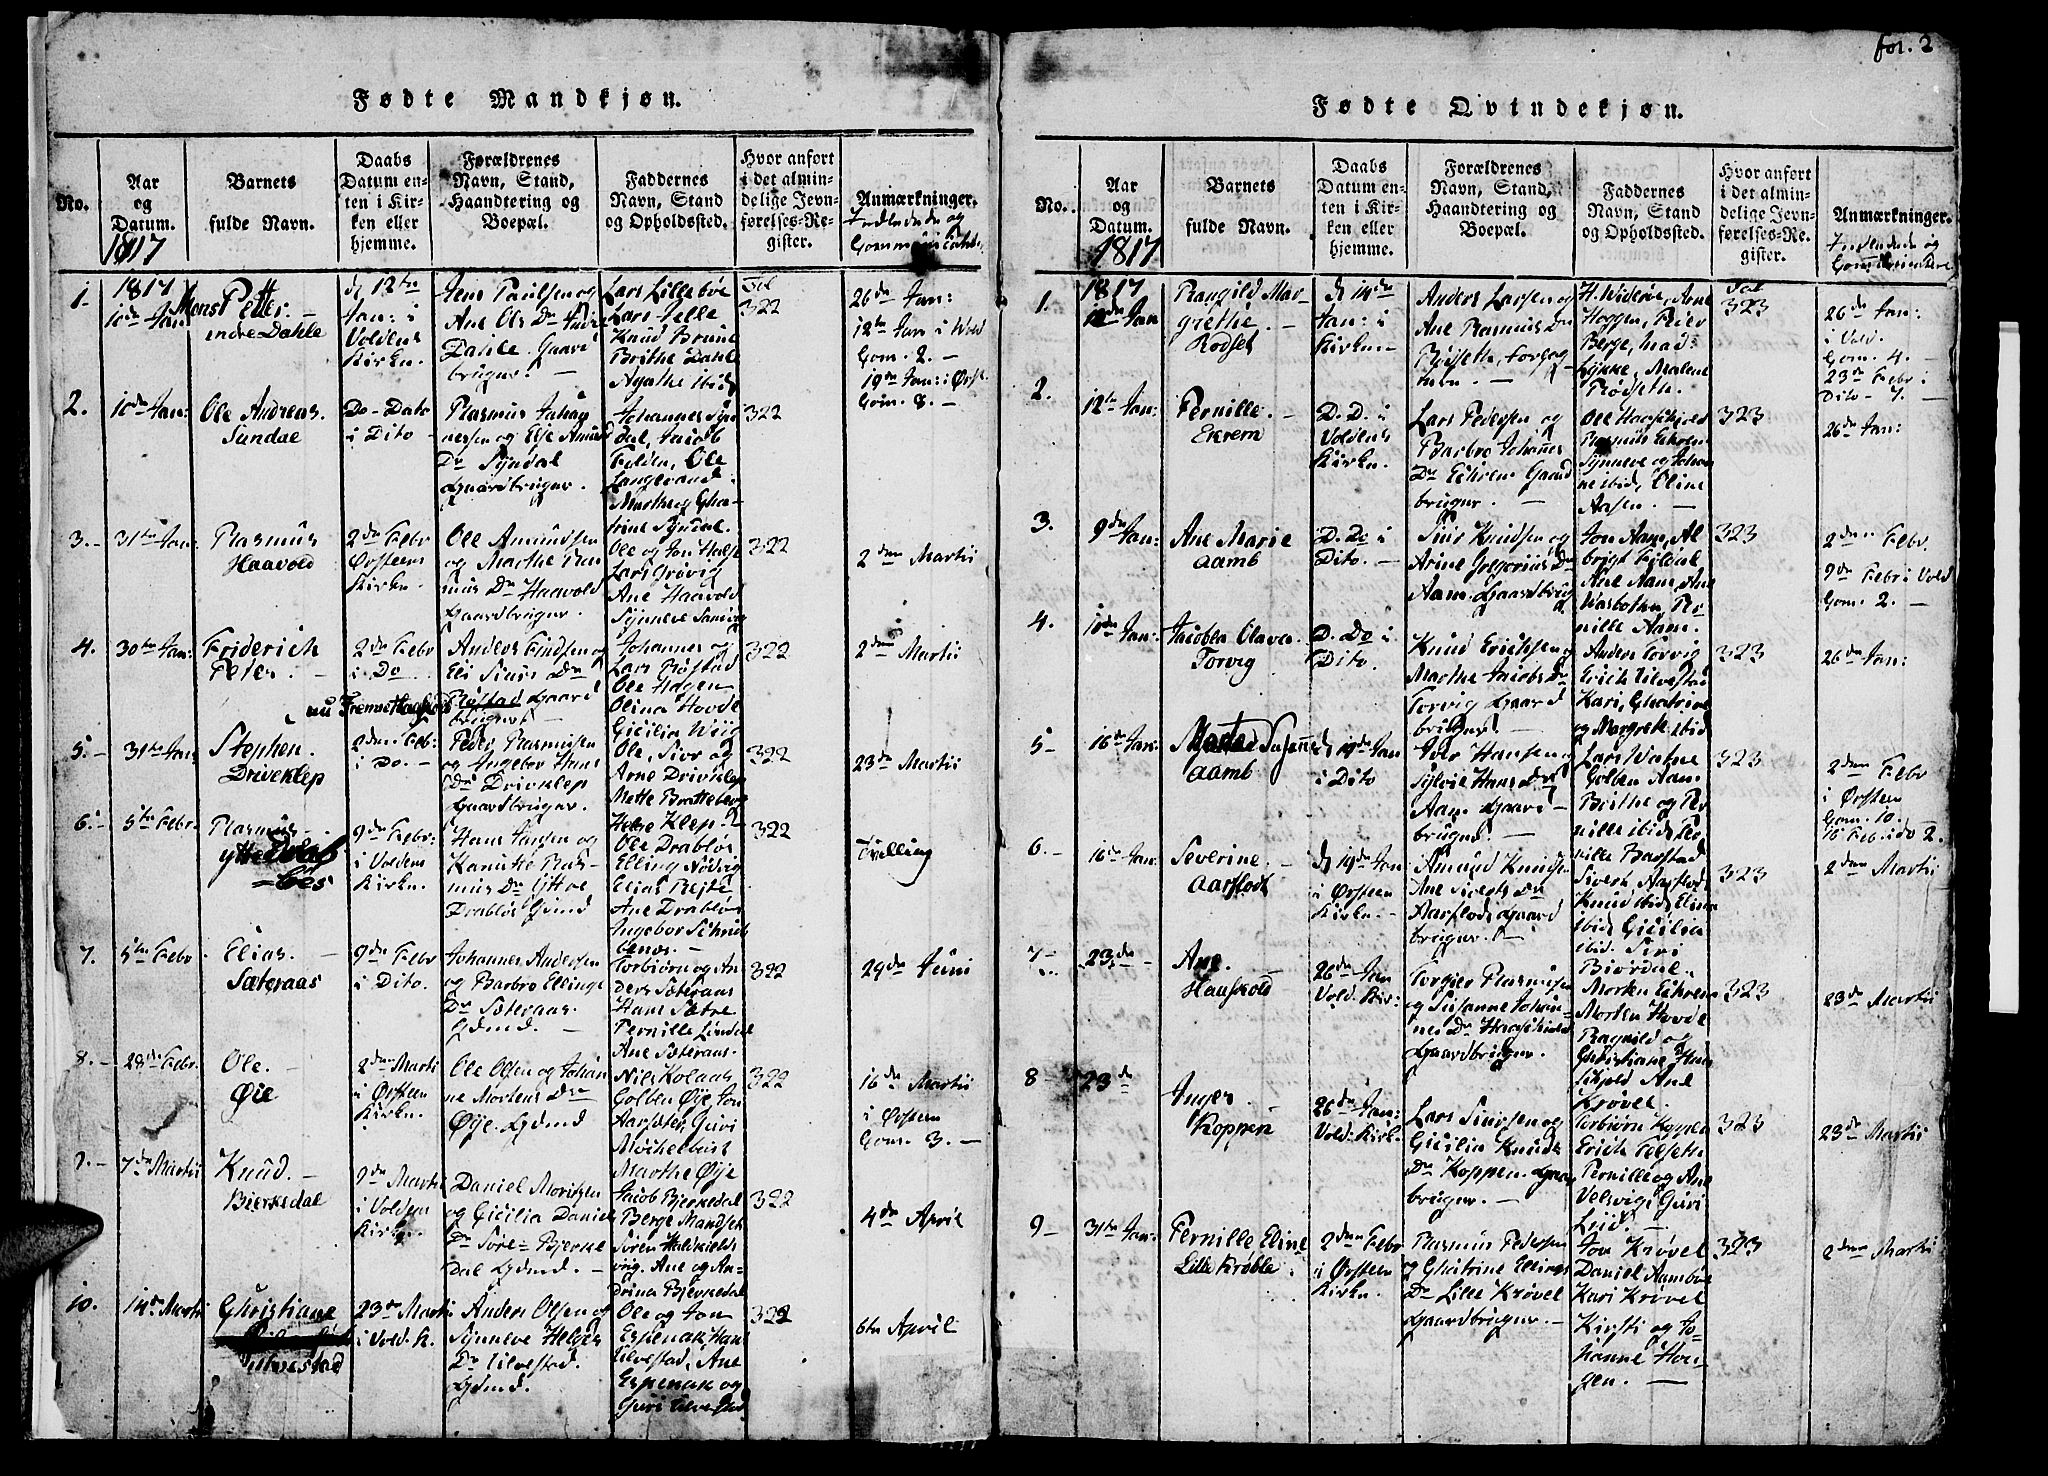 Fødte Mandkjøn.
No.
Aar
og
Datum.
1817
Barnets
fulde Navn.
Daabs
Datum en-
ten i Kir-
ken eller
hjemme.
Forældrenes
Navn, Stand,
Haandtering og
Boepæl.
Faddernes
Navn, Stand
og Opholdssted.
Hvor anført
i det almin-
delige Jevn-
førelses-Re-
gister.
Anmærkninger.
1-
1817
10de Jan
Mons Petter
indre Dahle
d. 12te
Jan: i
Voldens
Kirke.
Jens Paulsen og
Ane Ols Dr Indre
Dahle. Gaard
bruger. —
Lars Lillebøe
Lars Velle
Knud Brune
Brithe Dahle
Agathe ibid
Fol
322
26de Jan:
12te Jan i Vold
Gom. 2. —
19de Jan: i Ørst.
Gom. 8. —
2.
10de Jan:
Ole Andreas.
Sundae
Do-Dato
i Dito
Rasmus Johan
nessen og Else Amund
Dr Syndal
Gaardbruger.
Johannes Syn
dal, Jacob
Folden, Ole
Langeland.
Marthe og Cha-
trine Syndal.
322
3.-
31te Jan:
Rasmus
Haavold
2den Febr
Ørsteens
Kirke.
Ole Amundsen
og Marthe Ras
mus Dr Haavold
Gaardbruger.
Ole og Jon Halse
Lars Grøvig
Ane Haavold
Synneve
322
2den Martii
4.
30te Jan:
Friderich
Peter. —
2den Febr
i Do. —
Anders Findsen og
Eli Siurs Dr
Røstad Gaard
bruger —
Johannes og
Lars Røstad
Ole Hagen
Olina Hovde
Cicilia Wiig
322
2den Martii
5.-
31te Jan
Stephen.
Driveklep
2den Feb:
i Do. —
Peder Rasmusen
og Ingebor Hans
Dr Driveklep
Gaardbruger.
Ole, Sivr og
Arne Driveklep
Mette Bratteberg
322
23de Martii
6.-
5te Febr.
Rasmus
ytte
9de Febr:
i Voldens
Kirke.
Hans Jensen og
Ras-
mus Dr Yttre
Drabløs Gdmd
Klep
Ole Drabløs
Elling Nødvig
Elias Reite
Ane Drabløs
Ingebor
322
Tvilling
7.
5te Febr
Elias.
Sæteraas
9de Febr
i Dito.
Johannes Andersen
og Barbro Ellings
Dr Sæteraas.
Gdmd. —
Torbiørn og An
ders Sæteraas
Hans Sætre
Pernille Lindal
Ane Sæteraas.
322
29de Juni
8. —
28de Febr.
Ole.
Øie
2den Marti
i Ørsteen
Kirke.
Ole Olsen og Johan
ne Mortens Dr
Øye. Gdmd
Nils Kolaas
Colben Øje Jon
Aarsæter, Guri
Møchelbust
Marthe Øje
322
16de Martii
i Ørsteen
Gom. 3. —
9.-
7de Martii
Knud.
Bierkedal
9de Marti
i Voldens
Kirke.
Daniel Moritzen
og Cicilia Daniels
Dr Søre- Bjerke
Dal Gdmd. —
Jacob Bjerkedal
Berge Mandset
Søren
vig. Ane og An-
drina Bjerkedal
322
4de April
10.
14de Martii
Christiane
Ullvestad
23de Marti
i Vold. K.
Anders Olsen og
Synneve Helges
Dr Ulvestad.
Gdmd.
Ole og Jon
Espenak, Hans
Ulvestad, Ane
Espenak og
Guri Ulvestad
322
6te April
fol. 2
Fødte Qvindekjøn.
No.
Aar
og
Datum.
1817
Barnets
fulde Navn.
Daabs
Datum en-
ten i Kir-
ken eller
hjemme.
Forældrenes
Navn, Stand,
Haandtering og
Boepæl.
Faddernes
Navn, Stand
og Opholdssted.
Hvor anført
i det almin-
delige Jevn-
førelses-Re-
gister.
Anmærkninger.
1.
1817
Jan
Rangild Mar-
grethe. —
Rødset
Jan: i
Kirke. —
Anders Larsen og
Ane Rasmus Dr
Rødseth,
H. Widerøe, Arne
Hoggen, Peder
Berge, Mad:
Lykke, Malene
Rødseth.
Fol
323
26de Jan:
i Vold.
Gom. 4. —
23de Febr i
Dito - 7. —
2.
12te Jan:
Pernille. —
Ekrem
D. D. i
Voldens
Kirke.
Lars Pedersen og
Barbro Johannes
Dr Eckrem Gaard
bruger. —
Ole Haaskiold
Rasmus Eckrem
Synneve og Johan
ne ibid, Eline
Aasen. —
323
26de Jan:
3.
9de Jan:
Ane Marie
Aamb
D. Do i
Dito. —
Siur Knudsen og
Arine Gregorius Dr
Aam. Gaardbrug
Jon Aam, Al
brigt
Ane Aam, Ane
Per-
nille Aam.
323
2den Febr.
9de Febr i Vold
Gom. 2. —
4.
10de Jan:
Jacobea Olava.
Torvig
D. Do i
Dito.
Knud Erichsen og
Marthe Jacobs Dr
Torvig Gaard
bruger. —
Anders Torvig
Erich Ulvestad
Kari, Chatrine
og Margrete ibid
323
26de Jan:
5-
16de Jan:
Aamb
19de Jan
i Dito
Iver Hansen og
Sylvie Hans Dr
Aam. Gaard-
bruger. —
Lars Vatne
Colben Aam
Brithe og Per
nille ibid, Per
nille Barstad
323
2den Febr
i Ørsteen
Gom. 10.
16 Feb. i do 2.
6. —
16de Jan:
Severine. —
Aarflodt
d. 19de Jan
i Ørsteen
Kirke. —
Amund Knudsen
Ane Siverts Dr
Aarflodt Gaard
bruger. —
Sivert Aarflodt
Knud ibid, Eline
ibid Cicilia
ibid. Siri
Biørdal.
323
2den Martii
7-
23de —
Ane. —
Hauskold
26de Jan
Vold. Kir.
Torgier Rasmusen
og Susanne Johan-
nes Dr
Gaardbruger.
Morten Eckrem
Morten Hovde
Ragnild og
Christiane
Ane
Krøvel.
323
23de Martii
8
23de
Inger.
Koppen
26de Jan:
Vold: Kirk.
Lars Siursen og
Cicilia Knuds
Dr Koppen. Gaar
bruger. —
Torbiørn Koppen
Erich Folseth
Pernille og Ane
Velsvig, Guri
Leid. —
323
23de Martii
9-
31te Jan:
Pernille Eline
Lille Krøble
2den Febr
i Ørsteen
Kirke.
Rasmus Pedersen
og Chatrine Ellings
Dr Lille Krøvel
Gaardbruger. —
Jon Krøvel
Daniel Aambøe
Kari Krøvel
Kirsti og Jo-
hanne Hou-
gen. —
323
2den Martii